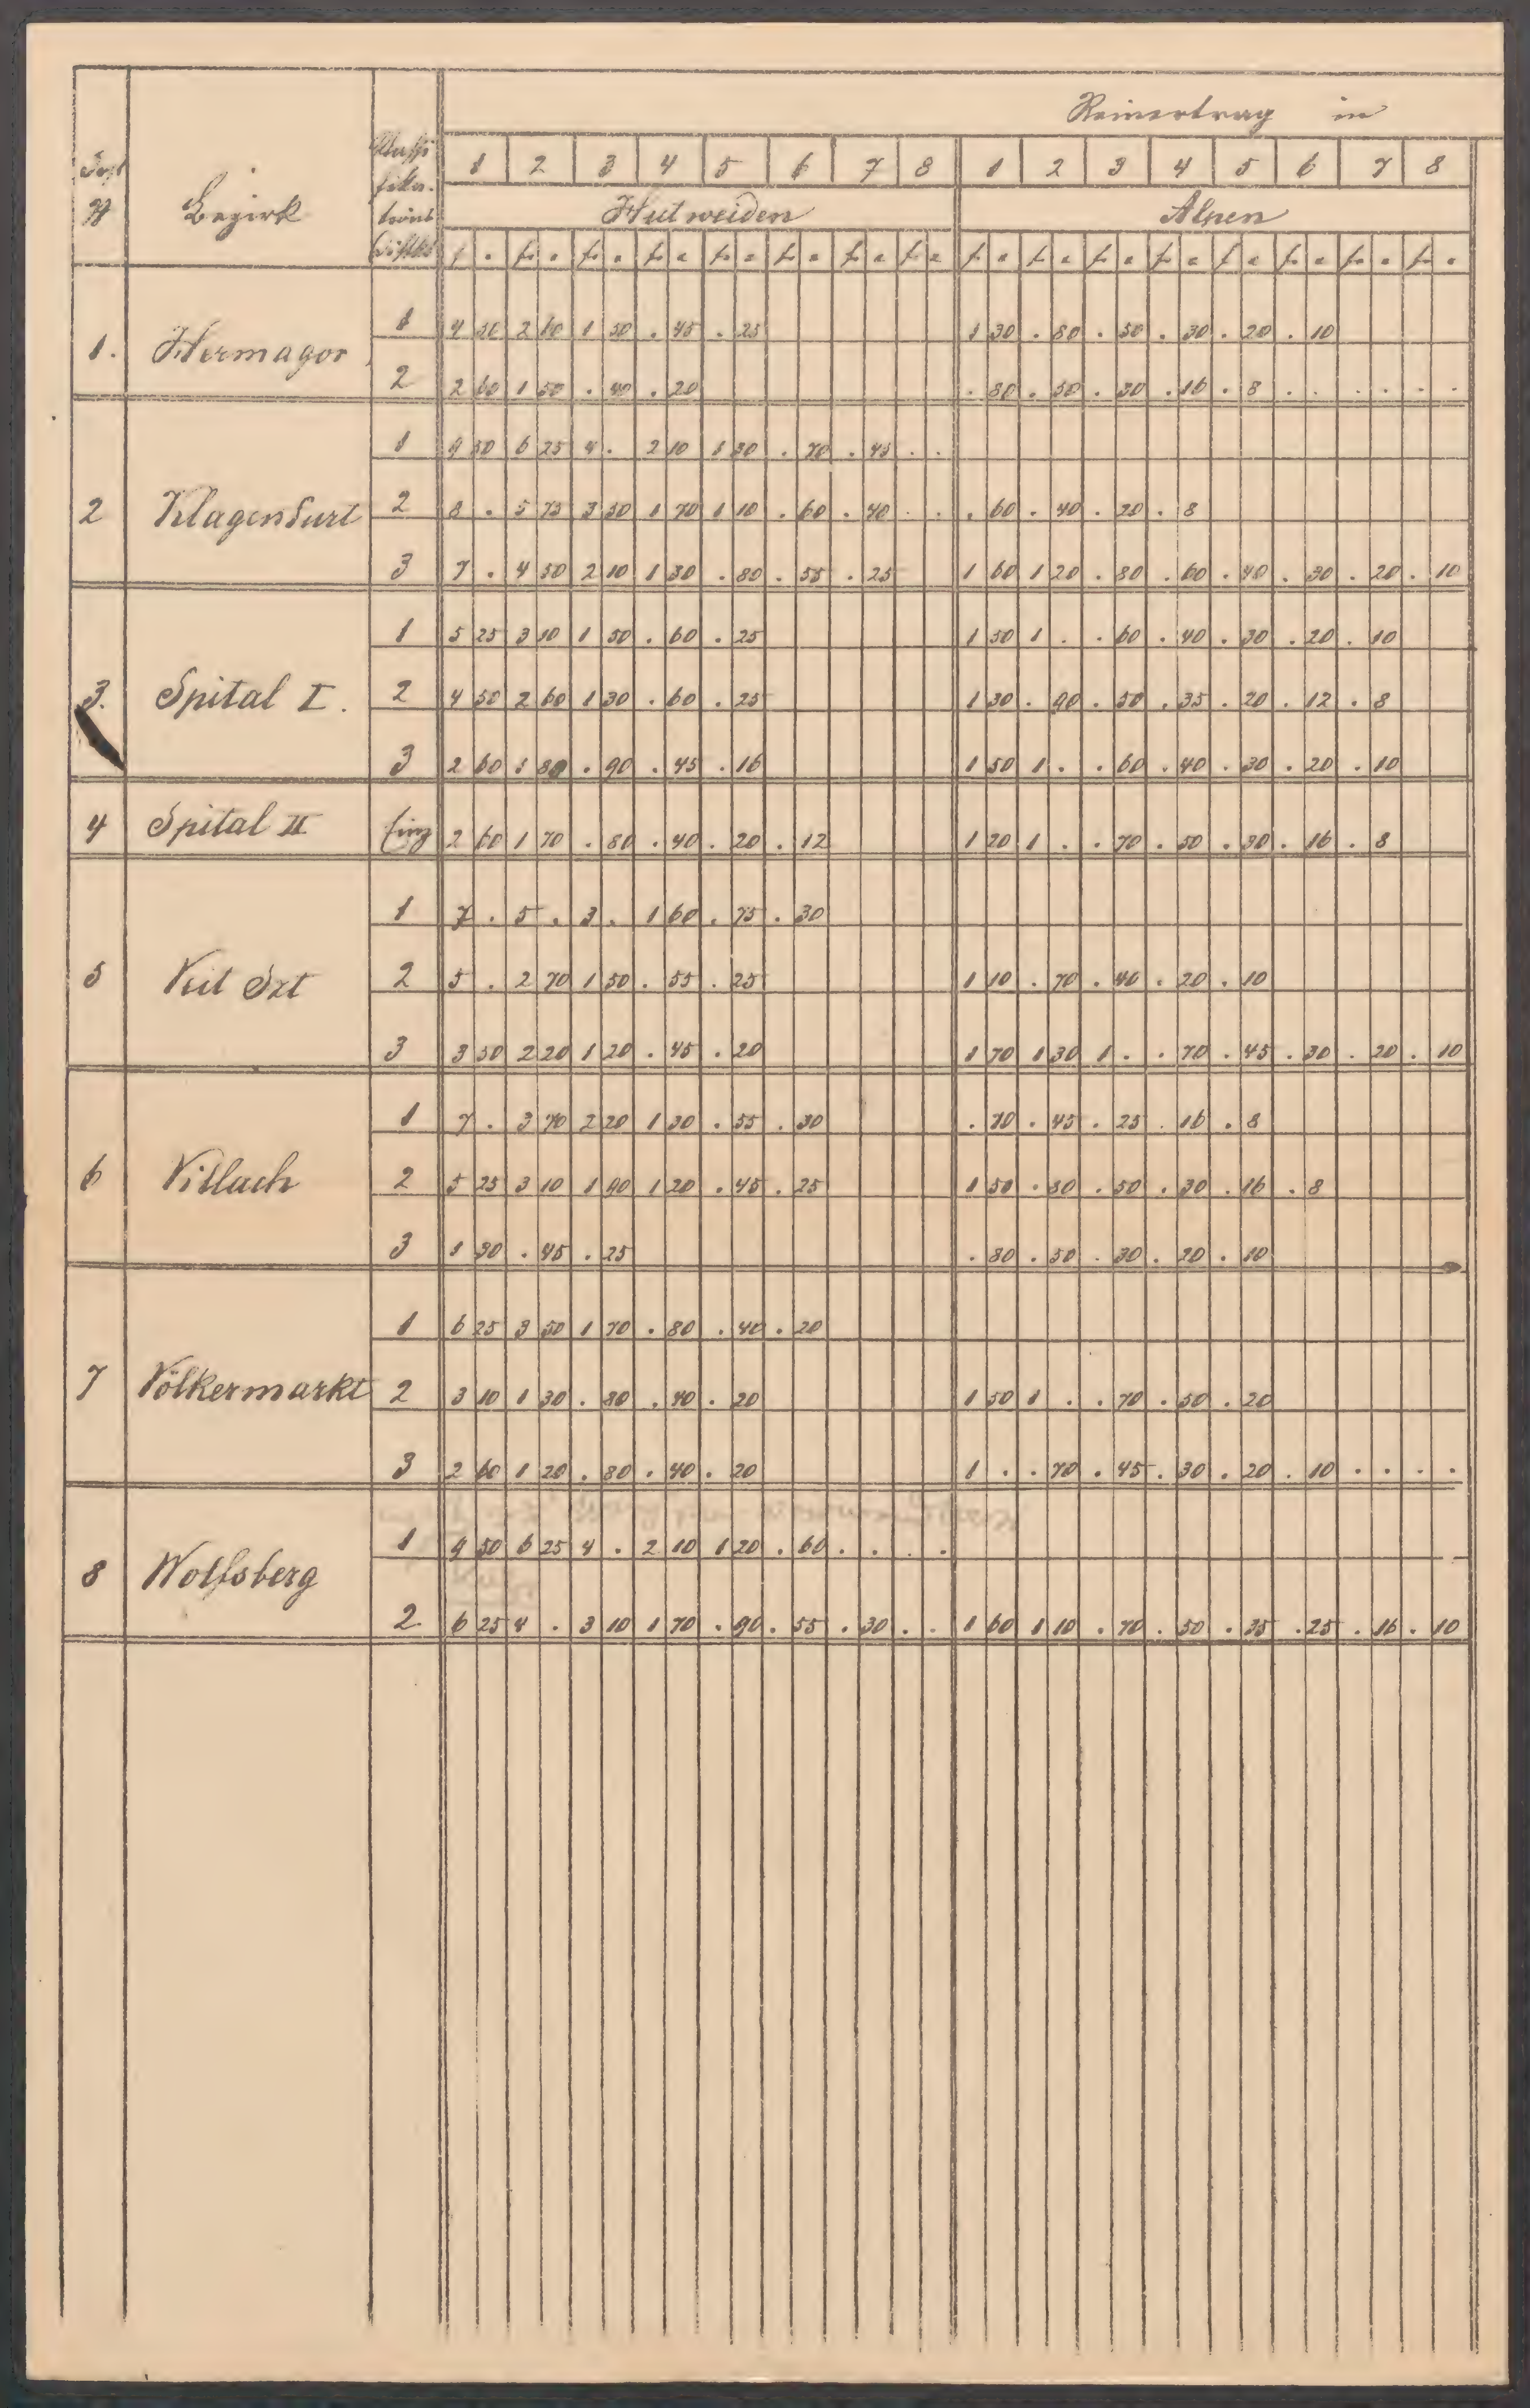 Reinertrag in
Post № Bezirk Klassifikations Distrikt 1 2 3 4 5 6 7 8 1 2 3 4 5 6 7 8
Hutweiden Alpen
1. Hermagor 1 4 50 2 60 1 50 . 45 . 25 1 30 . 80 . 50 . 30 . 20 . 10
2 2 60 1 50 . 40 . 20 . 80 . 50 . 30 . 16 . 8 . . . . . .
2 Klagenfurt 1 9 50 6 25 4 . 2 10 1 30 . 70 . 45 . .
2 8 . 5 75 3 50 1 70 1 10 . 60 . 40 . . . 60 . 40 . 20 . 8
3 7 . 4 50 2 10 1 30 . 80 . 55 . 25 1 60 1 20 . 80 . 60 . 40 . 30 . 20 . 10
3. Spital I. 1 5 25 3 10 1 50 . 60 . 25 1 50 1 . . 60 . 40 . 30 . 20 . 10
2 4 50 2 60 1 30 . 60 . 25 1 30 . 90 . 50 . 35 . 20 . 12 . 8
3 2 60 1 80 . 90 . 45 . 16 1 50 1 . . 60 . 40 . 30 . 20 . 10
4 Spital II Einz 2 60 1 70 . 80 . 40 . 20 . 12 1 20 1 . . 70 . 50 . 30 . 16 . 8
5 Veit Skt 1 7 . 5 . 3 . 1 60 . 75 . 30
2 5 . 2 70 1 50 . 55 . 25 1 10 . 70 . 40 . 20 . 10
3 3 50 2 20 1 20 . 45 . 20 1 70 1 30 1 . . 70 . 45 . 30 . 20 . 10
6 Villach 1 7 . 3 70 2 20 1 30 . 55 . 30 . 70 . 45 . 25 . 16 . 8
2 5 25 3 10 1 90 1 20 . 45 . 25 1 50 . 80 . 50 . 30 . 16 . 8
3 1 30 . 45 . 25 . 80 . 50 . 30 . 20 . 10
7 Völkermarkt 1 6 25 3 50 1 70 . 80 . 40 . 20
2 3 10 1 30 . 80 . 40 . 20 1 50 1 . . 70 . 50 . 20
3 2 60 1 20 . 80 . 40 . 20 1 . . 70 . 45 . 30 . 20 . 10 . . . .
8 Wolfsberg 1 9 50 6 25 4 . 2 10 1 20 . 60 . . . .
2. 6 25 4 . 3 10 1 70 . 90 . 55 . 30 . . 1 60 1 10 . 70 . 50 . 35 . 25 . 16 . 10